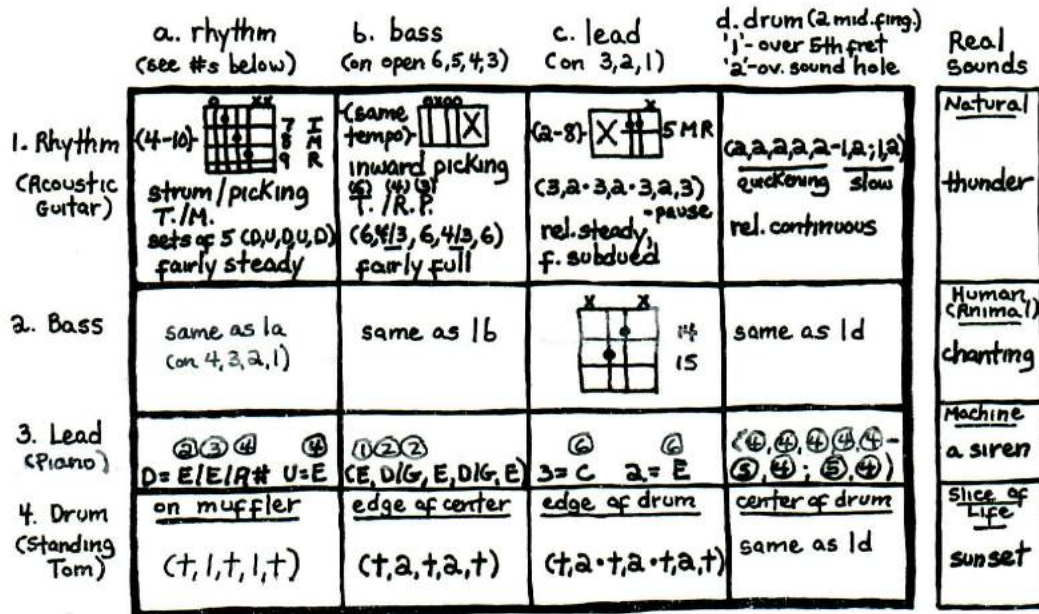 a. rhythm
(see #s below)
b. bass
(on open 6,5,4,3)
c. lead
(on 3,2,1)
d. drum (2 mid. fing.)
'1'- over 5th fret
'2'-ov. sound hole
Real
Sounds
1. Rhythm
(Acoustic
Guitar)
o xx
(4-10)
7 I
8 M
9 R
strum/picking
T./M.
sets of 5 (D,U,D,U,D)
fairly steady
(same
tempo)
oxoo
X
inward picking
(6) (4) (3)
T. / R. P.
(6,4/3, 6, 4/3, 6)
fairly full
x
(2-8)
X
5 MR
(3,2•3,2•3,2,3)
-pause
rel. steady,
f. subdued
(2,2,2,2,2-1,2;1,2)
quickening slow
rel. continuous
Natural
thunder
2. Bass
same as 1a
(on 4,3,2,1)
same as 1b
x x
14
15
same as 1d
Human,
(Animal)
chanting
3. Lead
(Piano)
② ③ ④ ④
D=E/E/A# U=E
① ② ②
(E, D/G, E, D/G, E)
⑥ ⑥
3=C 2=E
(④,④,④,④,④-
⑤,④; ⑤,④)
Machine
a siren
4. Drum
(Standing
Tom)
on muffler
(t,1,t,1,t)
edge of center
(t,2,t,2,t)
edge of drum
(t,2•t,2•t,2,t)
center of drum
same as 1d
Slice of
Life
sunset